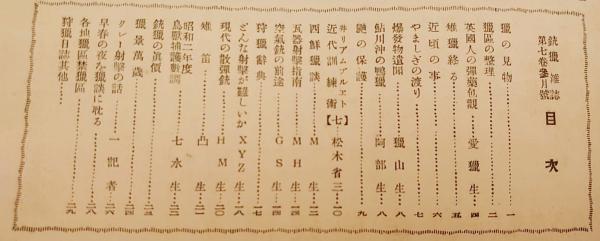 銃獵雜誌
第七卷參月號
目次
獵の見物……一
獵區の整理……二
英國人の彈藥色觀……愛獵生……四
雉獵終る……五
近頃の事……六
やましぎの渡り……七
爆發物遺聞……獵山生……八
鮎川沖の鴨獵……阿部生……八
鶉の保護……九
井リアムブルヱト
近代訓練術【七】……松木省三……一〇
西鮮獵談……M生……一二
瓦器射擊指南……MH生……一四
空氣銃の前途……GS生……一四
狩獵辭典……一七
どんな射擊が難しいか……XYZ……一八
現代の散彈銃……HM生……二〇
雉笛……凸生……二一
昭和二年度
鳥獸捕護數調……七水生……二二
銃獵の眞價……二三
獵景萬歲……二四
クレー射擊の話……一記者……二四
早春の夜を獵談に耽る……二六
各地獵區禁獵區……二八
狩獵日誌其他……二九